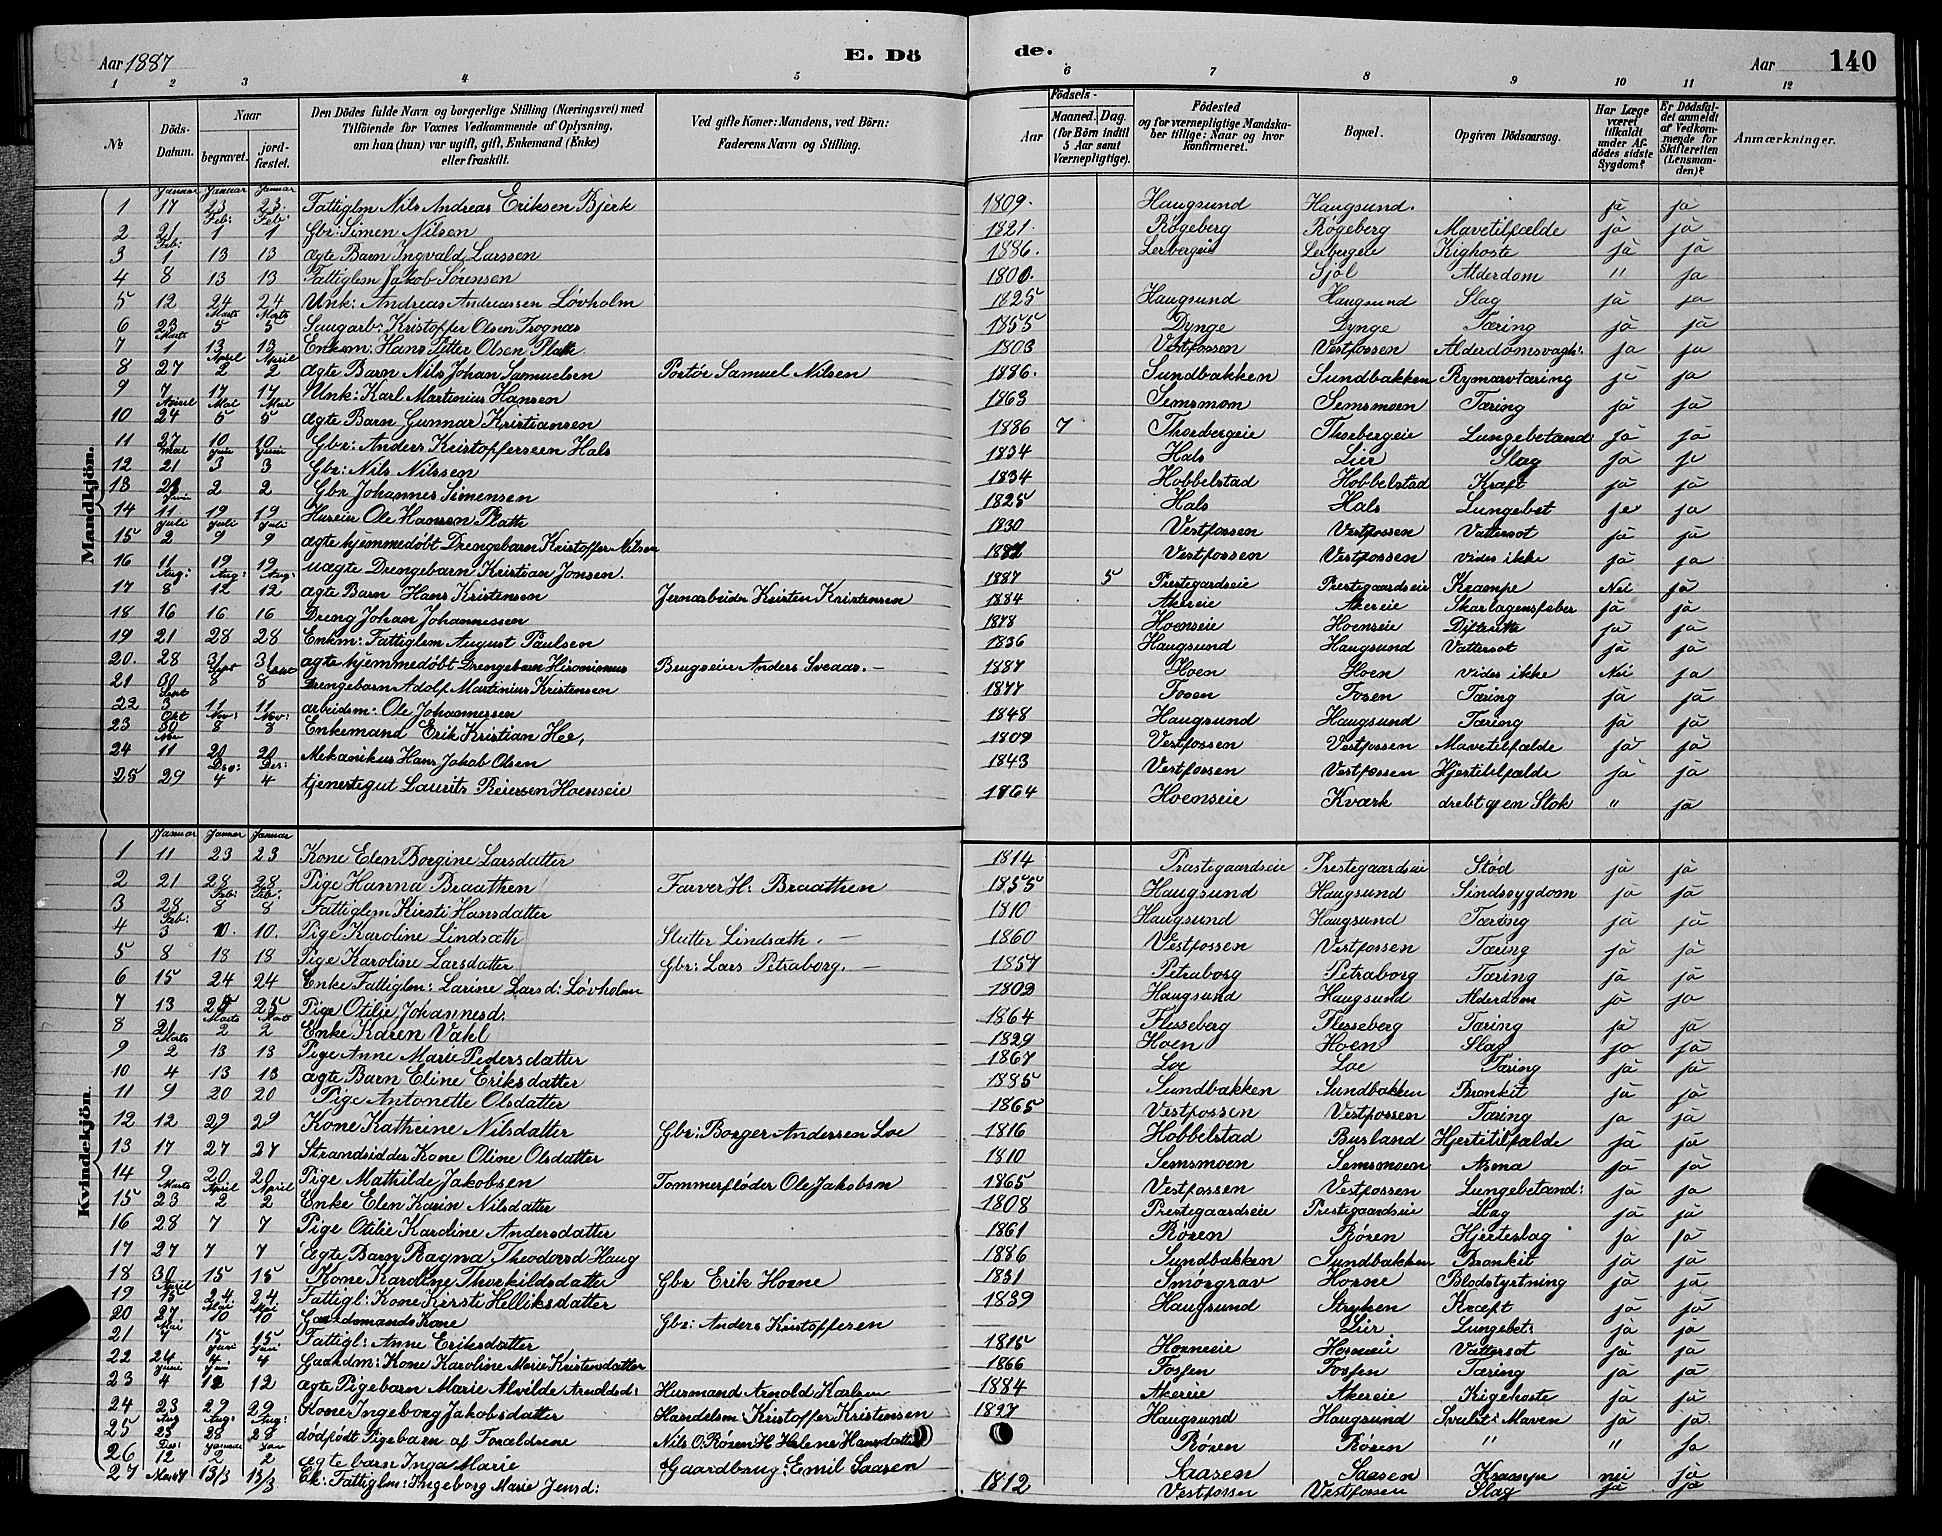 Aar 1887 E. Dö de. Aar 140
1 2 3 4 5 6 7 8 9 10 11 12
№ Döds-Datum. Naar begravet. jord-fæstet. Den Dödes fulde Navn og borgerlige Stilling (Næringsvei) med Tilföiende for Voxnes Vedkommende af Oplysning, om han (hun) var ugift, gift, Enkemand (Enke) eller fraskilt. Ved gifte Koner: Mandens, ved Börn: Faderens Navn og Stilling. Födsels- Aar Maaned. Dag. (for Börn indtil 5 Aar samt Værnepligtige). Födested og for værnepligtige Mandska-ber tillige: Naar og hvor konfirmeret. Bopæl. Opgiven Dödsaarsag. Har Læge været tilkaldt under Af-dödes sidste Sygdom? Er Dödsfal-det anmeldt af Vedkom-mende for Skifteretten (Lensman-den)? Anmærkninger.
Mandkjön.
Januar Januar Januar
1 17 23 23. Fattiglm Nils Andreas Eriksen Bjerk 1809. Haugsund Haugsund. ja ja
Feb: Feb:
2 21 1 1 Gbr: Simen Nilsen 1821. Røgeberg Røgeberg Mavetilfælde ja ja
Feb:
3 1 13 13 ægte Barn Ingvald Larssen 1886. Lerbergeie Lerbergeie Kighoste ja ja
4 8 13 13 Fattiglem Jakob Sørensen 1800. Sjøl Alderdom " ja
5 12 24 24 Unk: Andreas Andreassen Løvholm 1825 Haugsund Haugsund Slag ja ja
Marts Marts
6 23 5 5 Saugarb: Kristoffer Olsen Trognæs 1855 Dynge Dynge Tæring ja ja
Marts
7 1 13 13 Enkem: Hans Petter Olsen Plath 1803 Vestfossen Vestfossen Alderdomsvagh: ja ja
April April
8 27 2 2 ægte Barn Nils Johan Samuelsen Portør Samuel Nilsen 1886. Sundbakken Sundbakken ja ja
9 7 17 17 Unk: Karl Martinius Hansen 1863 Semsmoen Semsmoen Tæring ja ja
April Mai Mai
10 24 5 5 ægte Barn Gunnar Kristiansen 1886 7 Thorbergeie Thorbergeie Lungebetænd: ja ja
11 27 10 10 Gbr: Anders Kristofferseen Hals 1834 Hals Lier Slag ja ja
Mai Juni Juni
12 21 3 3 Gbr: Nils Nilssen 1834 Hobbelstad Hobbelstad Kræft ja ja
13 23 2 2 Gbr Johannes Simensen 1825 Hals Hals Lungebet ja ja
Juni
14 11 19 19 Huseier Ole Hansen Plath 1830 Vestfossen Vestfossen Vattersot ja ja
Juli Juli Juli
15 2 9 9 ægte hjemmedøbt Drengebarn Kristoffer Nilsen Vestfossen Vestfossen vides ikke ja ja
16 11 19 19 uægte Drengebarn Kristian Jonsen. 1887 5 Prestegardseie Prestegaardseie Krampe Nei ja
Aug: Aug: Aug:
17 8 12 12 ægte Barn Hans Kristensen Jernarbeider Kristen Kristensen 1884 Akereie Akereie Skarlagensfeber ja ja
18 16 16 16 Dreng Johan Johannessen 1878 Hoenseie Hoenseie Difterit ja ja
19 21 28 28 Enkm: Fattiglem August Paulsen 1836 Haugsund Haugsund Vattersot ja ja
20. 28 31 31 ægte hjemmedøbt Drengebarn Hironimus Brugseier Anders Sveaas. — 1887 Hoen Hoen vides ikke Nei ja
Sept Sept
21 30 8 8 Drengebarn Adolf Martinius Kristensen 1877 Fosen Fosen Tæring ja ja
Sept
22 3 11 11 arbeidsm: Ole Johannessen 1848 Haugsund Haugsund Tæring ja ja
Okt Nov: Nov:
23 30 8 8 Enkemand Erik Kristian Hee, 1809 Vestfossen Vestfossen Mavetilfælde ja ja
Nov
24 11 20 20 Mekanikus Hans Jakob Olsen 1843 Vestfossen Vestfossen Hjertetilfælde ja ja
Des: Des:
25 29 4 4 tjenestegut Laurits Reiersen Hoenseie 1864 Hoenseie Kværk dræbt af en Stok " ja
Kvindekjön.
Januar Januar Januar
1 11 23 23 Kone Elen Borgine Larsdatter 1814 Prestegaardseie Prestegaardseie Stød ja ja
2 21 28 28 Pige Hanna Braathen Farver H. Braathen 1855 Haugsund Haugsund Sindssygdom ja ja
Feb: Feb:
3 28 8 8 Fattiglem Kirsti Hansdatter 1810 Haugsund Haugsund Tæring ja ja
Feb:
4 3 10. 10. Pige Karoline Lindsæth Lindsæth. — 1860 Vestfossen Vestfossen Tæring ja ja
5 8 18 18 Pige Karoline Larsdatter Gbr: Lars Petraborg. — 1857 Petraborg Petraborg Tæring ja ja
6 15 24 24 Enke Fattiglm: Larine Larsd: Løvholm 1802 Haugsund Haugsund Alderdom ja ja
7 13 25 25 Pige Otilie Johannesd. 1864 Flesseberg Flesseberg Tæring ja ja
Marts Marts
8 21 2 2 Enke Karen Vahl 1829 Hoen Hoen Slag ja ja
Marts
9 2 13 13 Pige Anne Marie Pedersdatter 1867 Loe Loe Tæring ja ja
10 4 13 13 ægte Barn Eline Eriksdatter 1885 Sundbakken Sundbakken Bronkit ja ja
11 9 20 20 Pige Antonette Olsdatter 1865 Vestfossen Vestfossen Tæring ja ja
12 12 29 29 Kone Kathrine Nilsdatter Gbr: Borger Andersen Loe 1816 Hobbelstad Busland Hjertetilfælde ja ja
13 17 27 27 Strandsidder Kone Oline Olsdatter 1810 Semsmoen Semsmoen Asma ja ja
14 9 20 20 Pige Mathilde Jakobsen Tommerfløder Ole Jakobsen 1865 Vestfossen Vestfossen Lungebetænd: ja ja
Marts April April
15 23 2 2 Enke Elen Karin Nilsdatter 1808 Prestegaardseie Prestegaardseie Slag ja ja
16 28 7 7 Pige Otilie Karoline Andersdatter 1861 Røren Røren Hjerteslag ja ja
17 27 7 7 Ægte Barn Ragna Theodorsd Haug 1886 Sundbakken Sundbakken Bronkit ja ja
18 30 15 15 Kone Karoline Thorkildsdatter Gbr Erik Horne 1831 Smørgrav Horne Blodstyrtning ja ja
April
19 15 24 24 Fattigl: Kone Kirsti Helliksdatter 1839 Haugsund Stryken Kræft ja ja
Mai Mai
20 27 10 10 Gaardmands Kone Gbr: Anders Kristoffersen Lier Lungebet: ja ja
Mai
21 7 15 15 Fattigl: Anne Eriksdatter 1815 Horneeie Horneeie Vattersot ja ja
Juni Juni
22 24 4 4 Gaardm: Kone Karoline Marie Kristensdatter 1866 Fossen Fossen Tæring ja ja
Juni Juni
23 4 12 12 ægte Pigebarn Marie Alvilde Arnoldsd: Husmand Arnold Karlsen 1884 Akereie Akereie Kigehoste ja ja
24 23 29 29 Kone Ingeborg Jakobsdatter Handelsm Kristoffer Kristensen 1827 Haugsund Haugsund Svulst i Maven ja ja
Aug Aug: Aug:
25 23 28 28 dødfødt Pigebarn af Forældrene Nils O. Røren H Helene Hansdatter Røren Røren " " ja
Des: Januar Jan
26 12 2 2 ægte barn Inga Marie Gaardbrug: Emil Saasen Saasen Saasen Krampe nei ja
27 13/3 13/3 Ek: Fattiglm: Ingeborg Marie Jensd: 1812 Vestfossen Vestfossen Slag ja ja